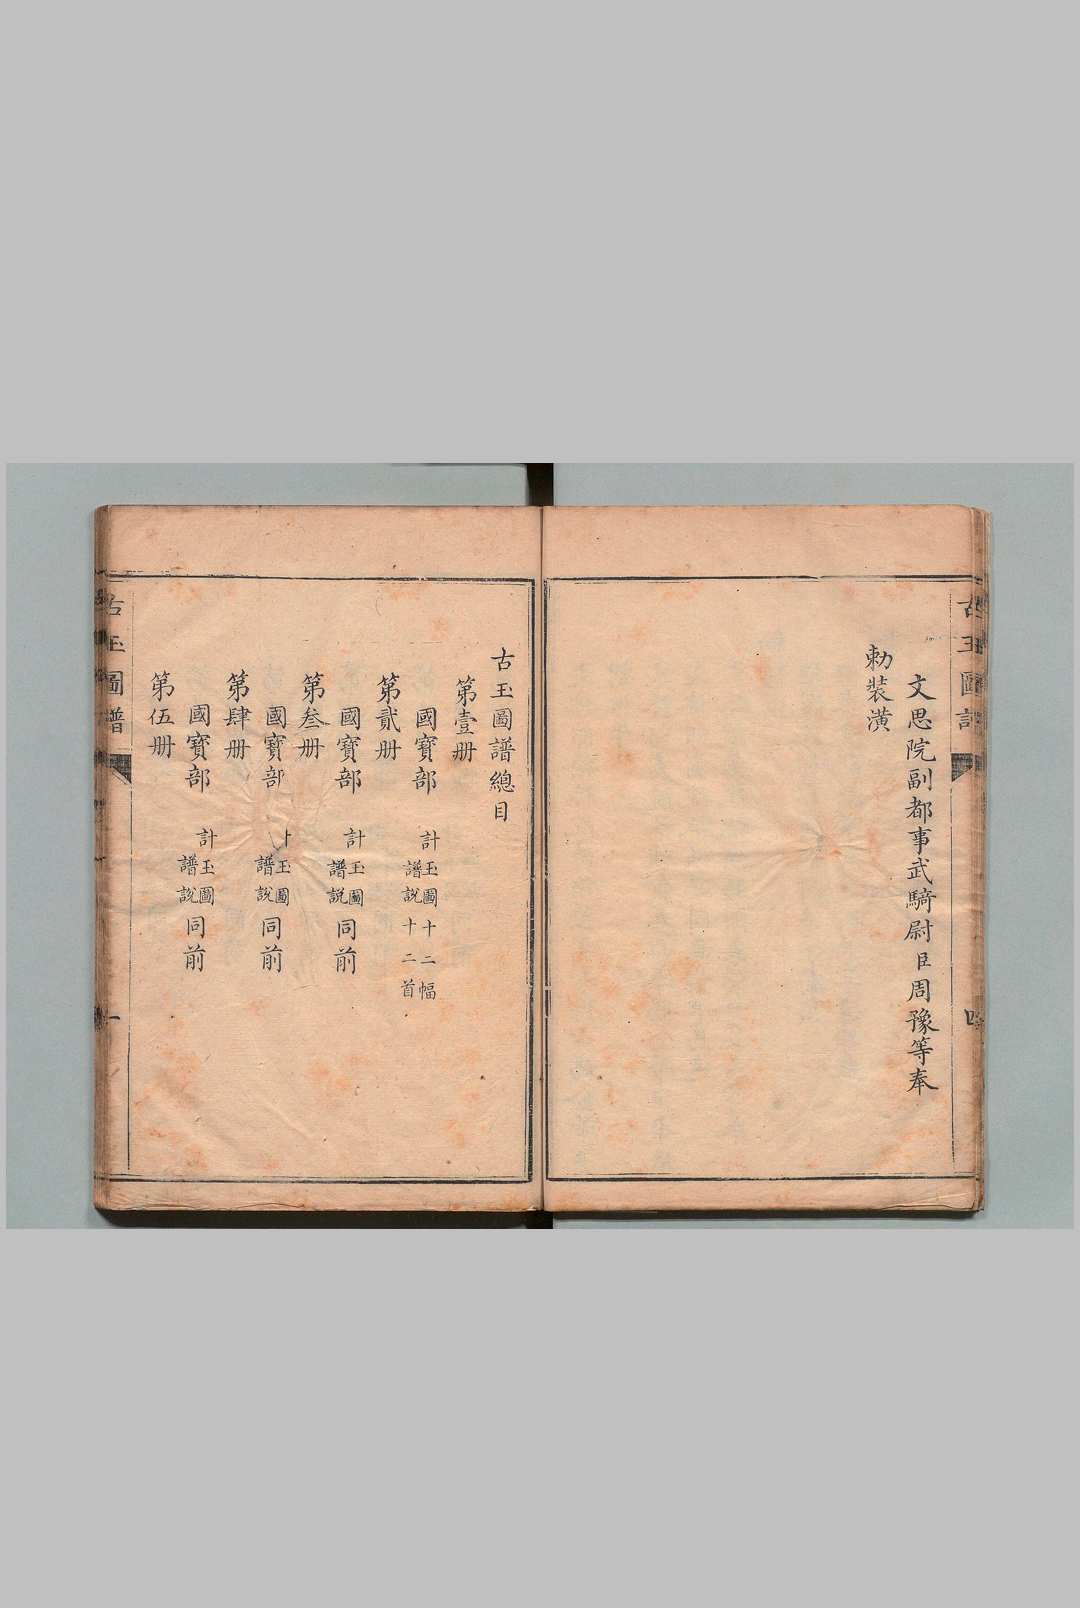 文思院副都事武騎尉臣周豫等奉
勅裝潢
古玉圖譜
四
古玉圖譜總目
第壹册
國寶部 計玉圖十二幅 譜說十二首
第貳册
國寶部 計玉圖 譜說 同前
第叁册
國寶部 計玉圖 譜說 同前
第肆册
國寶部 玉圖 譜說 同前
第伍册
古玉圖譜
一